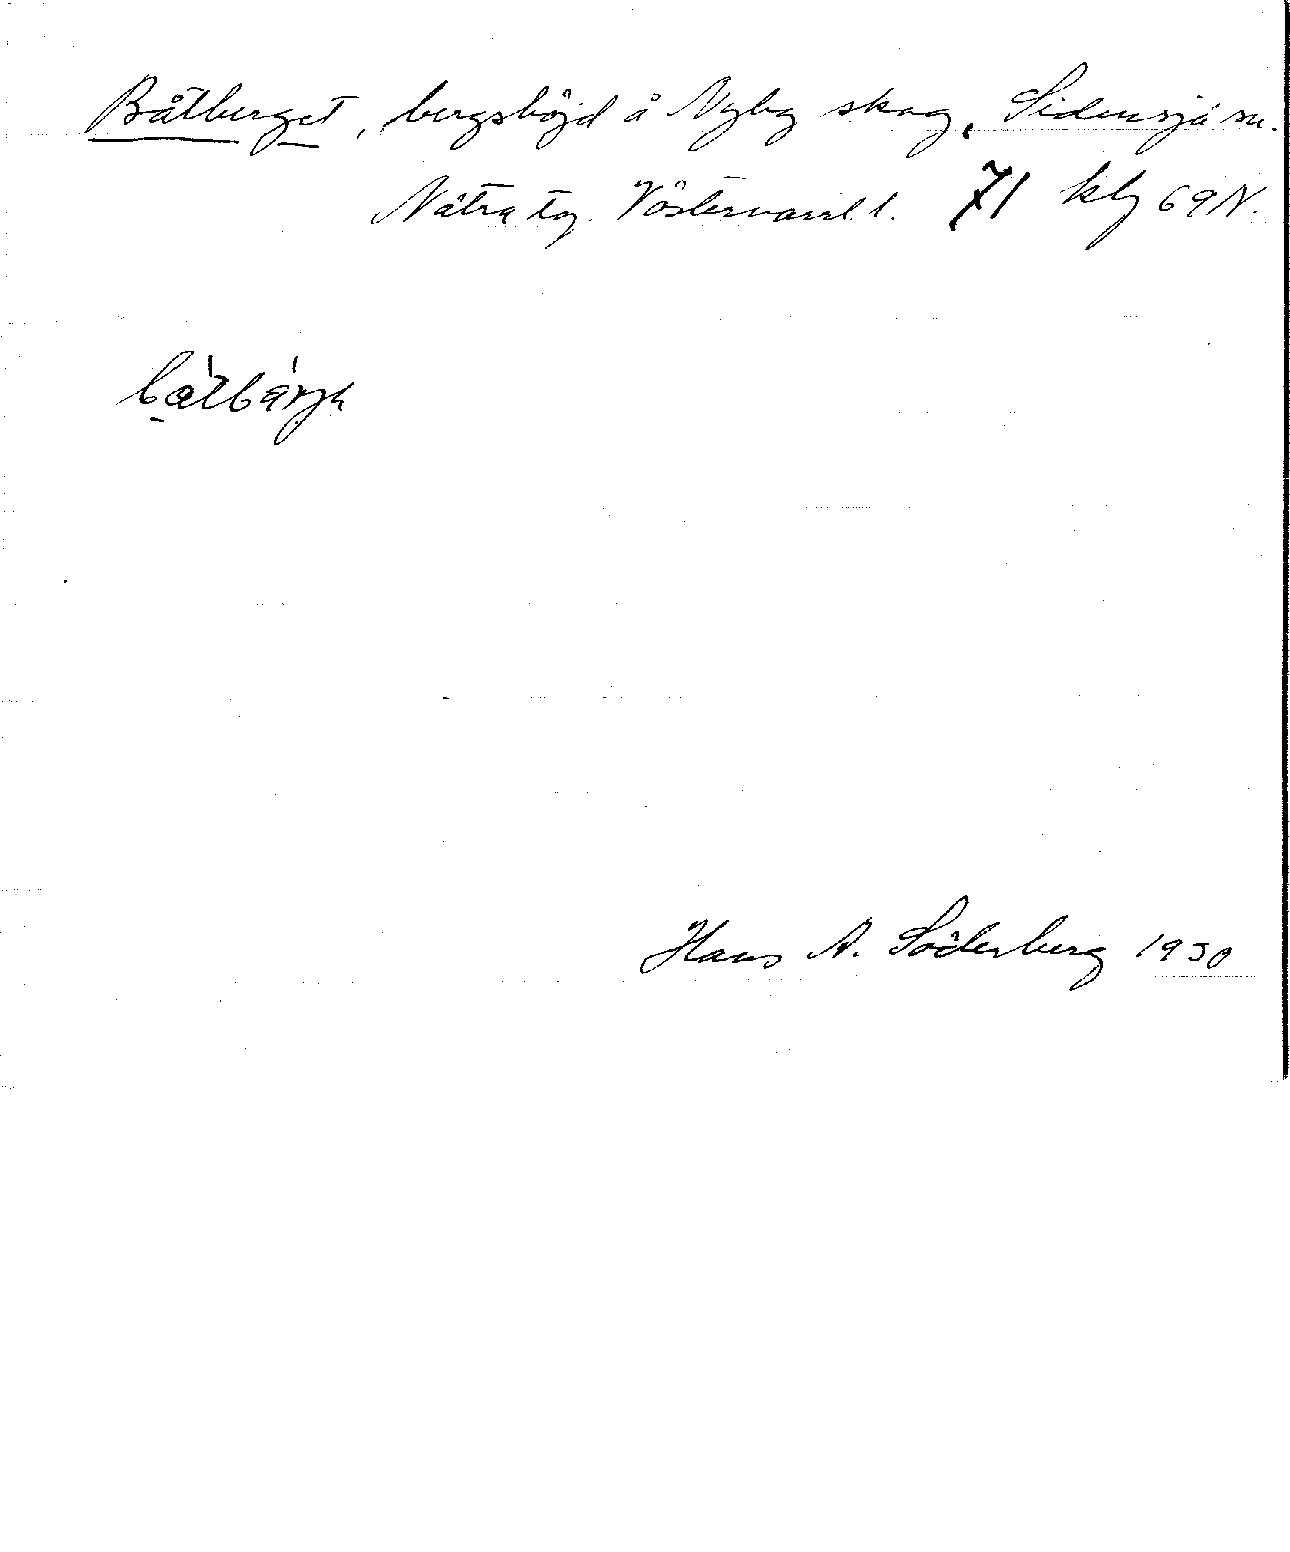 Båtberget, bergshöjd å Nyby skog, Sidensjö sn.
Nätra tg. Västernorrl. l. 71 kbl 69N.
Hans A. Söderberg 1930